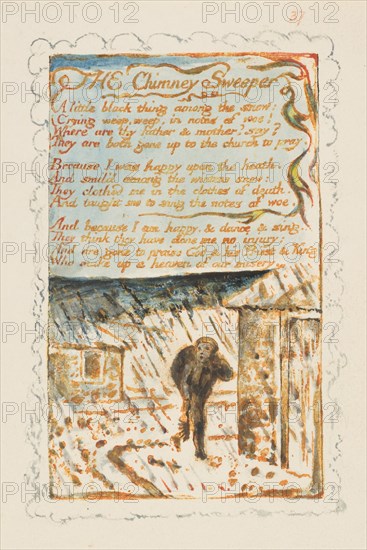 37
THE Chimney Sweeper
A little black thing among the snow:
Crying weep, weep, in notes of woe!
Where are thy father & mother? say?
They are both gone up to the church to pray.
Because I was happy upon the heath,
And smil'd among the winters snow:
They clothed me in the clothes of death,
And taught me to sing the notes of woe.
And because I am happy, & dance & sing,
They think they have done me no injury:
And are gone to praise God & his Priest & King
Who make up a heaven of our misery.
PHOTO12
PHOTO12
PHOTO12
PHOTO12
PHOTO12
PHOTO12
PHOTO12
PHOTO12
PHOTO12
PHOTO12
PHOTO12
PHOTO12